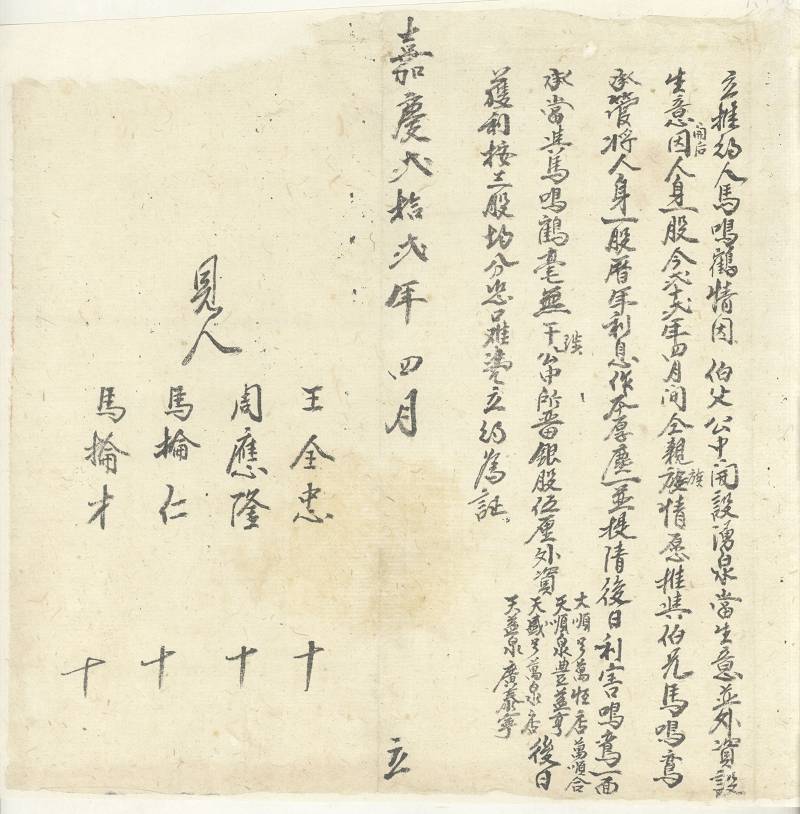 立推約人馬鳴鶴情因伯父公中開設湧泉當生意並外資設
生意因開后人身一股今弍十弍年四月間仝親族族情愿推與伯兄馬鳴鸞
承營將人身一股曆年利息作本厚廛一並提清後日利害鳴鸞一面
承當與馬鳴鶴毫無干涉公中所畱銀股伍厘外資
大順号萬恒店萬順合
天順泉豊益亨
天盛号萬泉店
天益泉廣泰寧
後日
獲利按三股均分恐口難凴立約為証。
嘉慶弍拾弍年四月 立
見人
王全忠 十
周應隆 十
馬掄仁 十
馬掄才 十